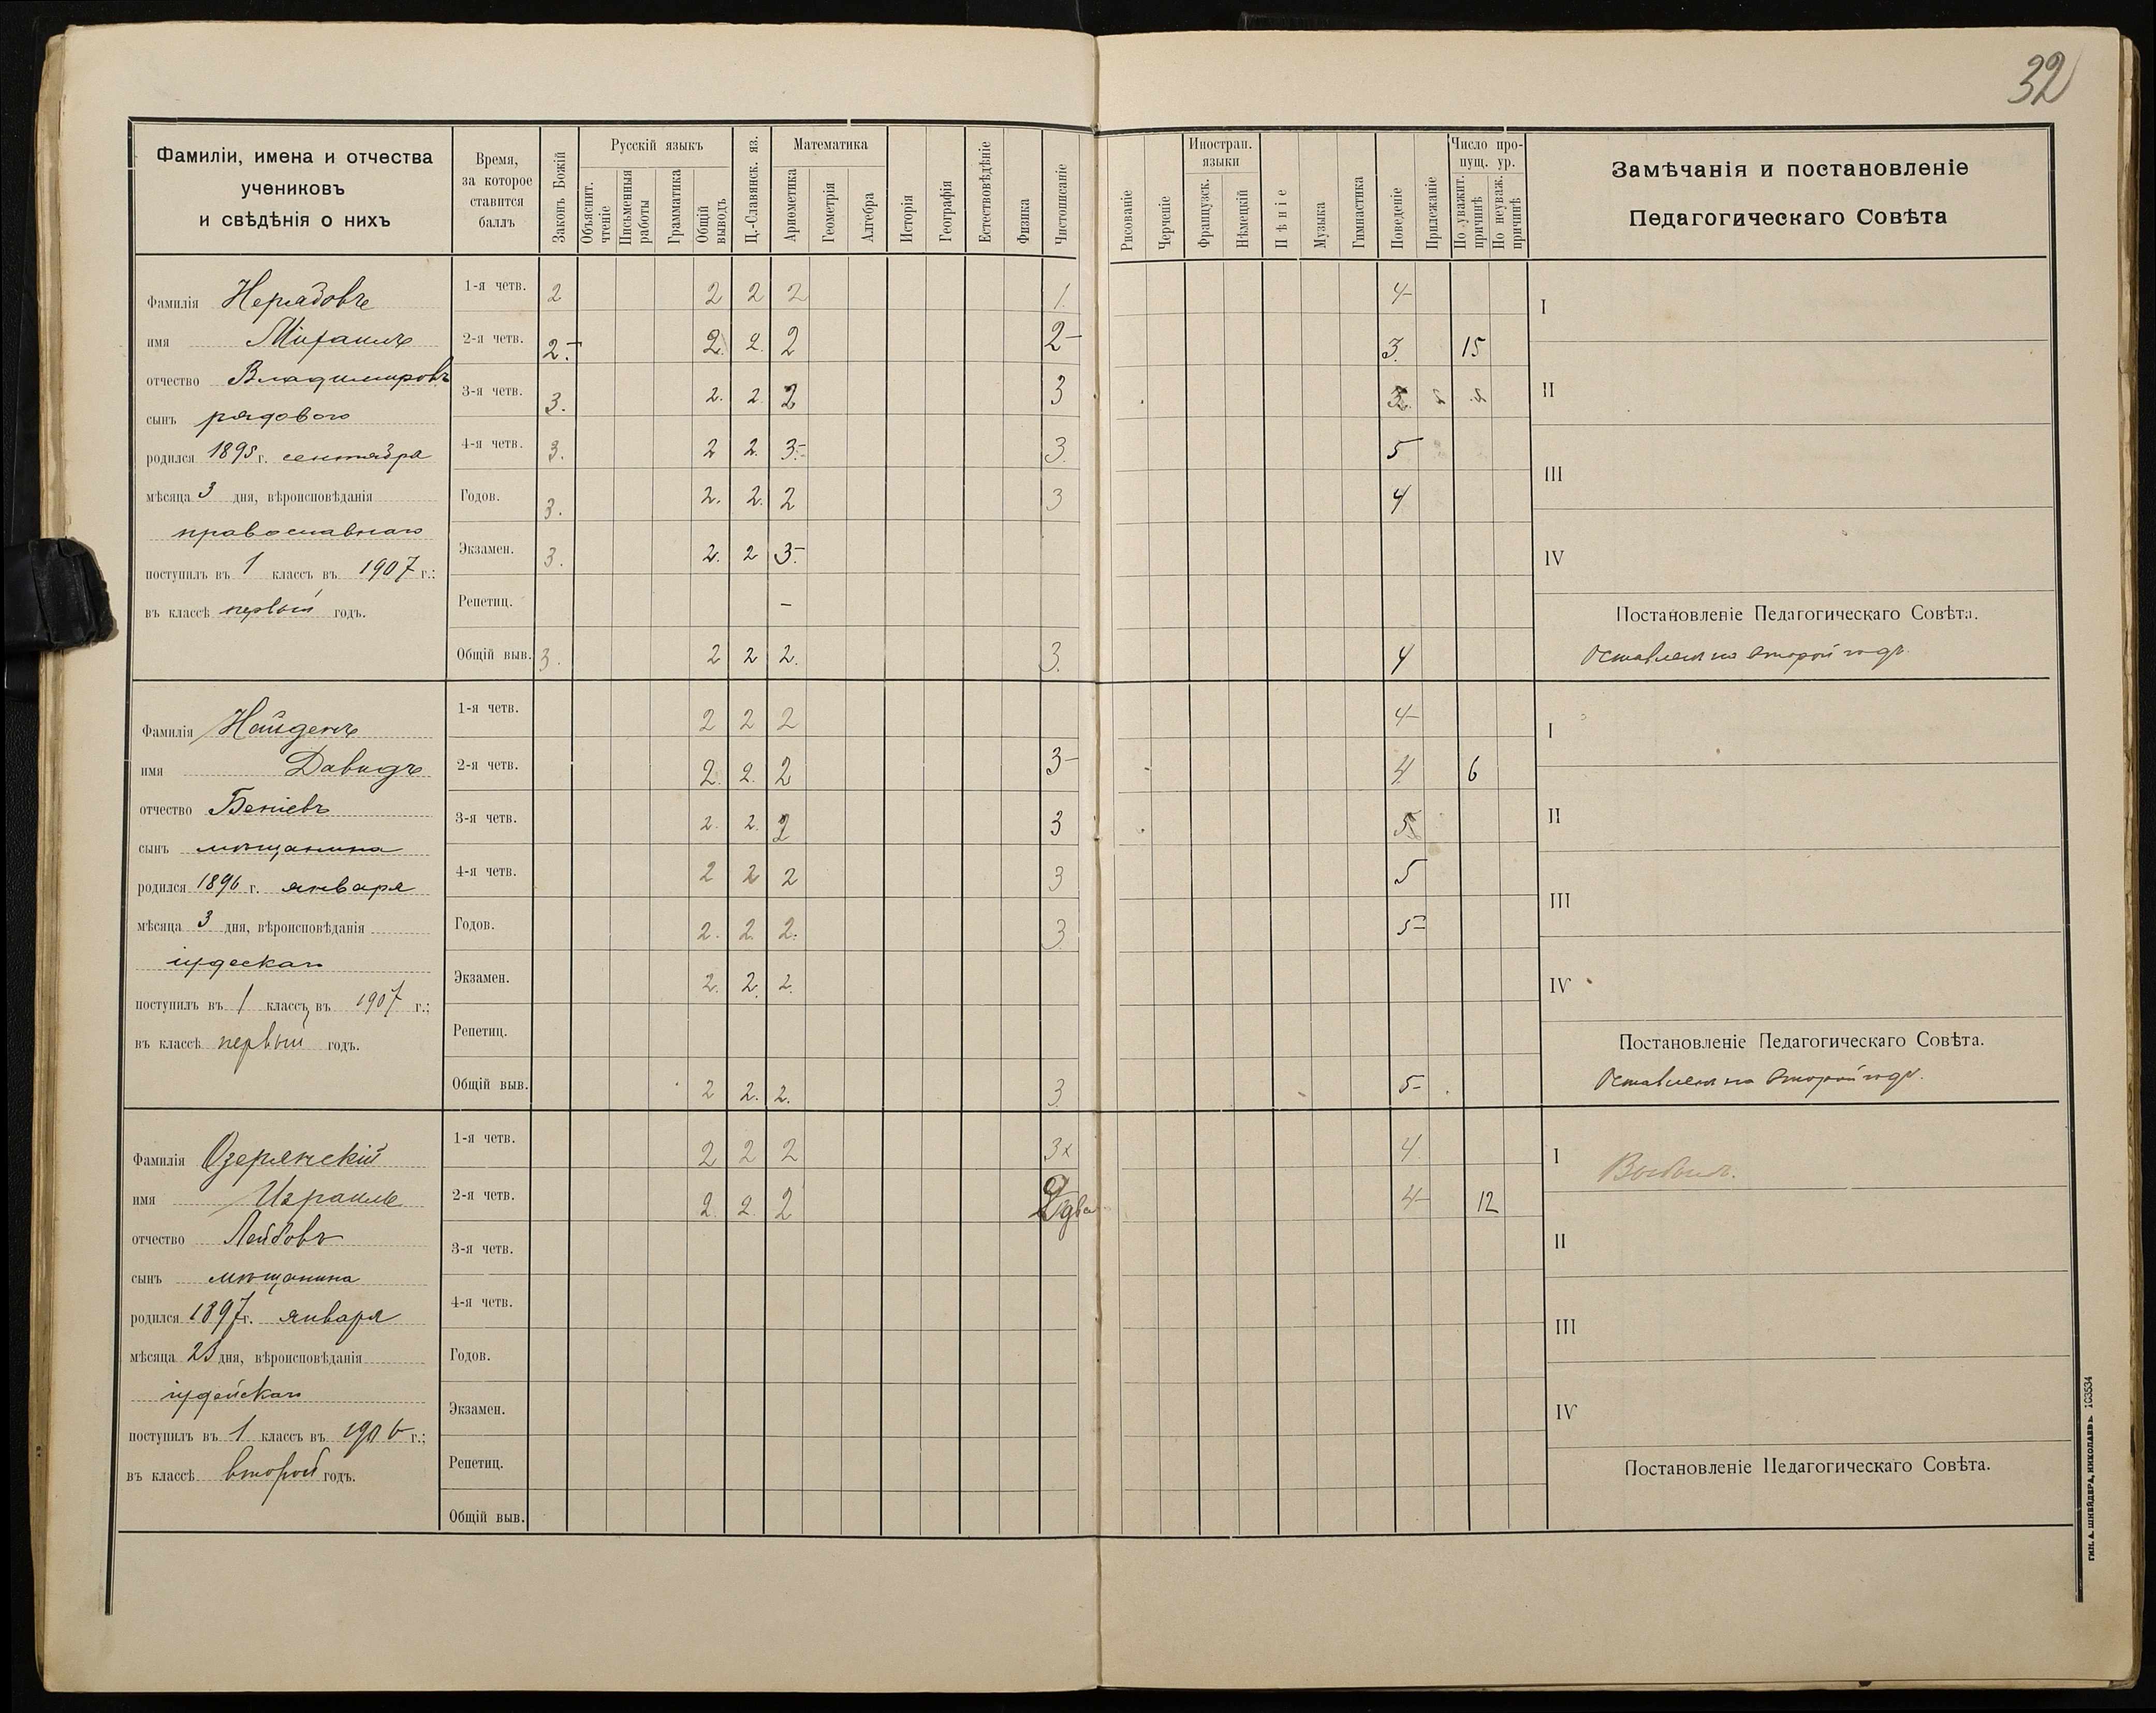 32
Фамиліи, имена и отчества
учениковъ
и свѣдѣнія о нихъ
Время,
за которое
ставится
баллъ
Законъ Божій
Русскій языкъ
Объяснит.
чтеніе
Письменныя
работы
Грамматика
Общій
выводъ
Ц.-Славянск. яз.
Математика
Ариѳметика
Геометрія
Алгебра
Исторія
Географія
Естествовѣдѣніе
Физика
Чистописаніе
Рисованіе
Черченіе
Иностран.
языки
Французск.
Нѣмецкій
Пѣніе
Музыка
Гимнастика
Поведеніе
Прилежаніе
Число про-
пущ. ур.
По уважит.
причинѣ
По неуваж.
причинѣ
Замѣчанія и постановленіе
Педагогическаго Совѣта
Фамилія Нерядовъ
имя Михаилъ
отчество Владимировъ
сынъ рядового
родился 1895 г. сентября
мѣсяца 3 дня, вѣроисповѣданія
православнаго
поступилъ въ 1 классъ въ 1907 г.:
въ классѣ первый годъ.
1-я четв. 2 2 2 2 1. 4-
2-я четв. 2.- 2. 2. 2 2- 3. 15
3-я четв. 3. 2. 2. 2 3
4-я четв. 3. 2 2. 3.- 3. 5
Годов. 3. 2. 2. 2 3 4
Экзамен. 3. 2. 2 3-
Репетиц. -
Общій выв. 3. 2 2 2. 3. 4
I
II
III
IV
Постановленіе Педагогическаго Совѣта.
Оставленъ на второй годъ.
Фамилія Найденъ
имя Давидъ
отчество Беніевъ
сынъ мѣщанина
родился 1896 г. января
мѣсяца 3 дня, вѣроисповѣданія
іудескаго
поступилъ въ 1 классъ въ 1907 г.;
въ классѣ первый годъ.
1-я четв. 2 2 2 4-
2-я четв. 2. 2. 2 3- 4. 6
3-я четв. 2. 2. 2 3 5
4-я четв. 2 2 2 3 5
Годов. 2. 2. 2. 3 5-
Экзамен. 2. 2. 2.
Репетиц.
Общій выв. 2 2. 2. 3. 5-
I
II
III
IV
Постановленіе Педагогическаго Совѣта.
Оставленъ на второй годъ.
Фамилія Озерянскій
имя Израиль
отчество Лейбовъ
сынъ мѣщанина
родился 1897 г. января
мѣсяца 25 дня, вѣроисповѣданія
іудейскаго
поступилъ въ 1 классъ въ 1906 г.;
въ классѣ второй годъ.
1-я четв. 2 2 2 3x 4.
2-я четв. 2. 2. 2 2 два 4- 12
3-я четв.
4-я четв.
Годов.
Экзамен.
Репетиц.
Общій выв.
I Выбылъ.
II
III
IV
Постановленіе Педагогическаго Совѣта.
ТИП. А. ШНЕЙДЕРА, НИКОЛАЕВЪ. 103534